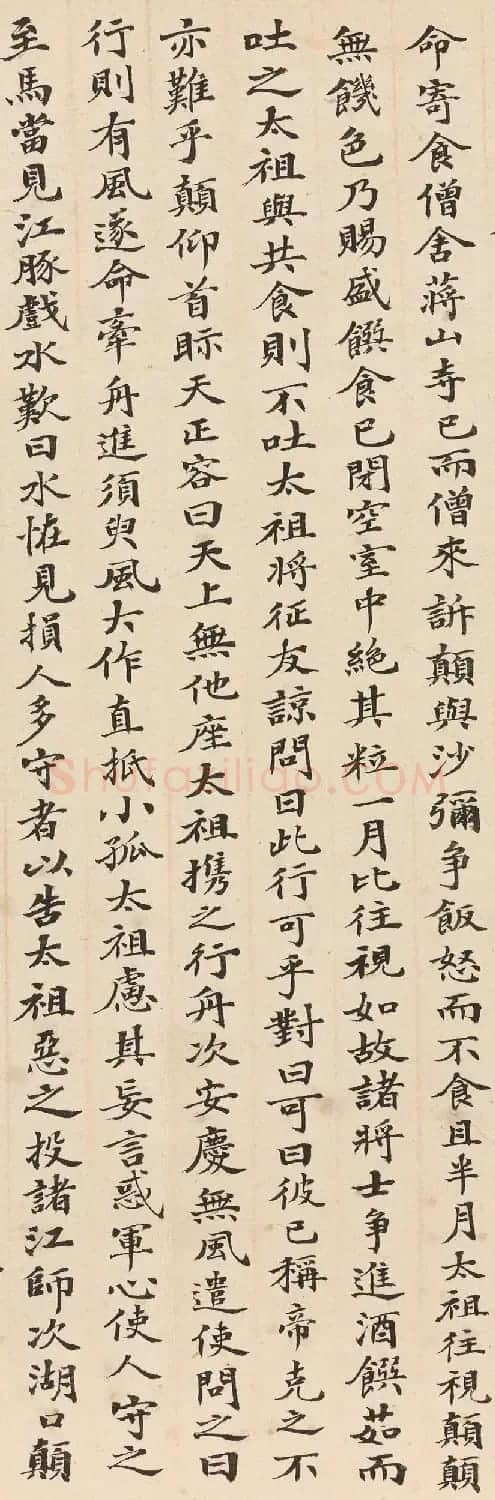 命寄食僧舍蔣山寺已而僧來訴顛與沙彌争飯怒而不食且半月太祖往視顛顛
無饑色乃賜盛饌食已閉空室中絶其粒一月比往視如故諸將士争進酒饌茹而
吐之太祖與共食則不吐太祖将征友諒問曰此行可乎對曰可曰彼已稱帝克之不
亦難乎顛仰首眎天正容曰天上無他座太祖携之行舟次安慶無風遣使問之曰
行則有風遂命牽舟進須臾風大作直抵小孤太祖慮其妄言惑軍心使人守之
至馬當見江豚戲水歎曰水恠見損人多守者以告太祖惡之投諸江師次湖口顛
Shufaziliao.COM